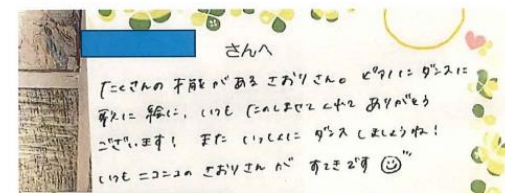 さんへ
たくさんの才能があるさおりさん。ピアノにダンスに
歌に絵に、いつもたのしませてくれてありがとう
ございます！また いっしょに ダンスしましょうね！
いつもニコニコのさおりさんが すてきです